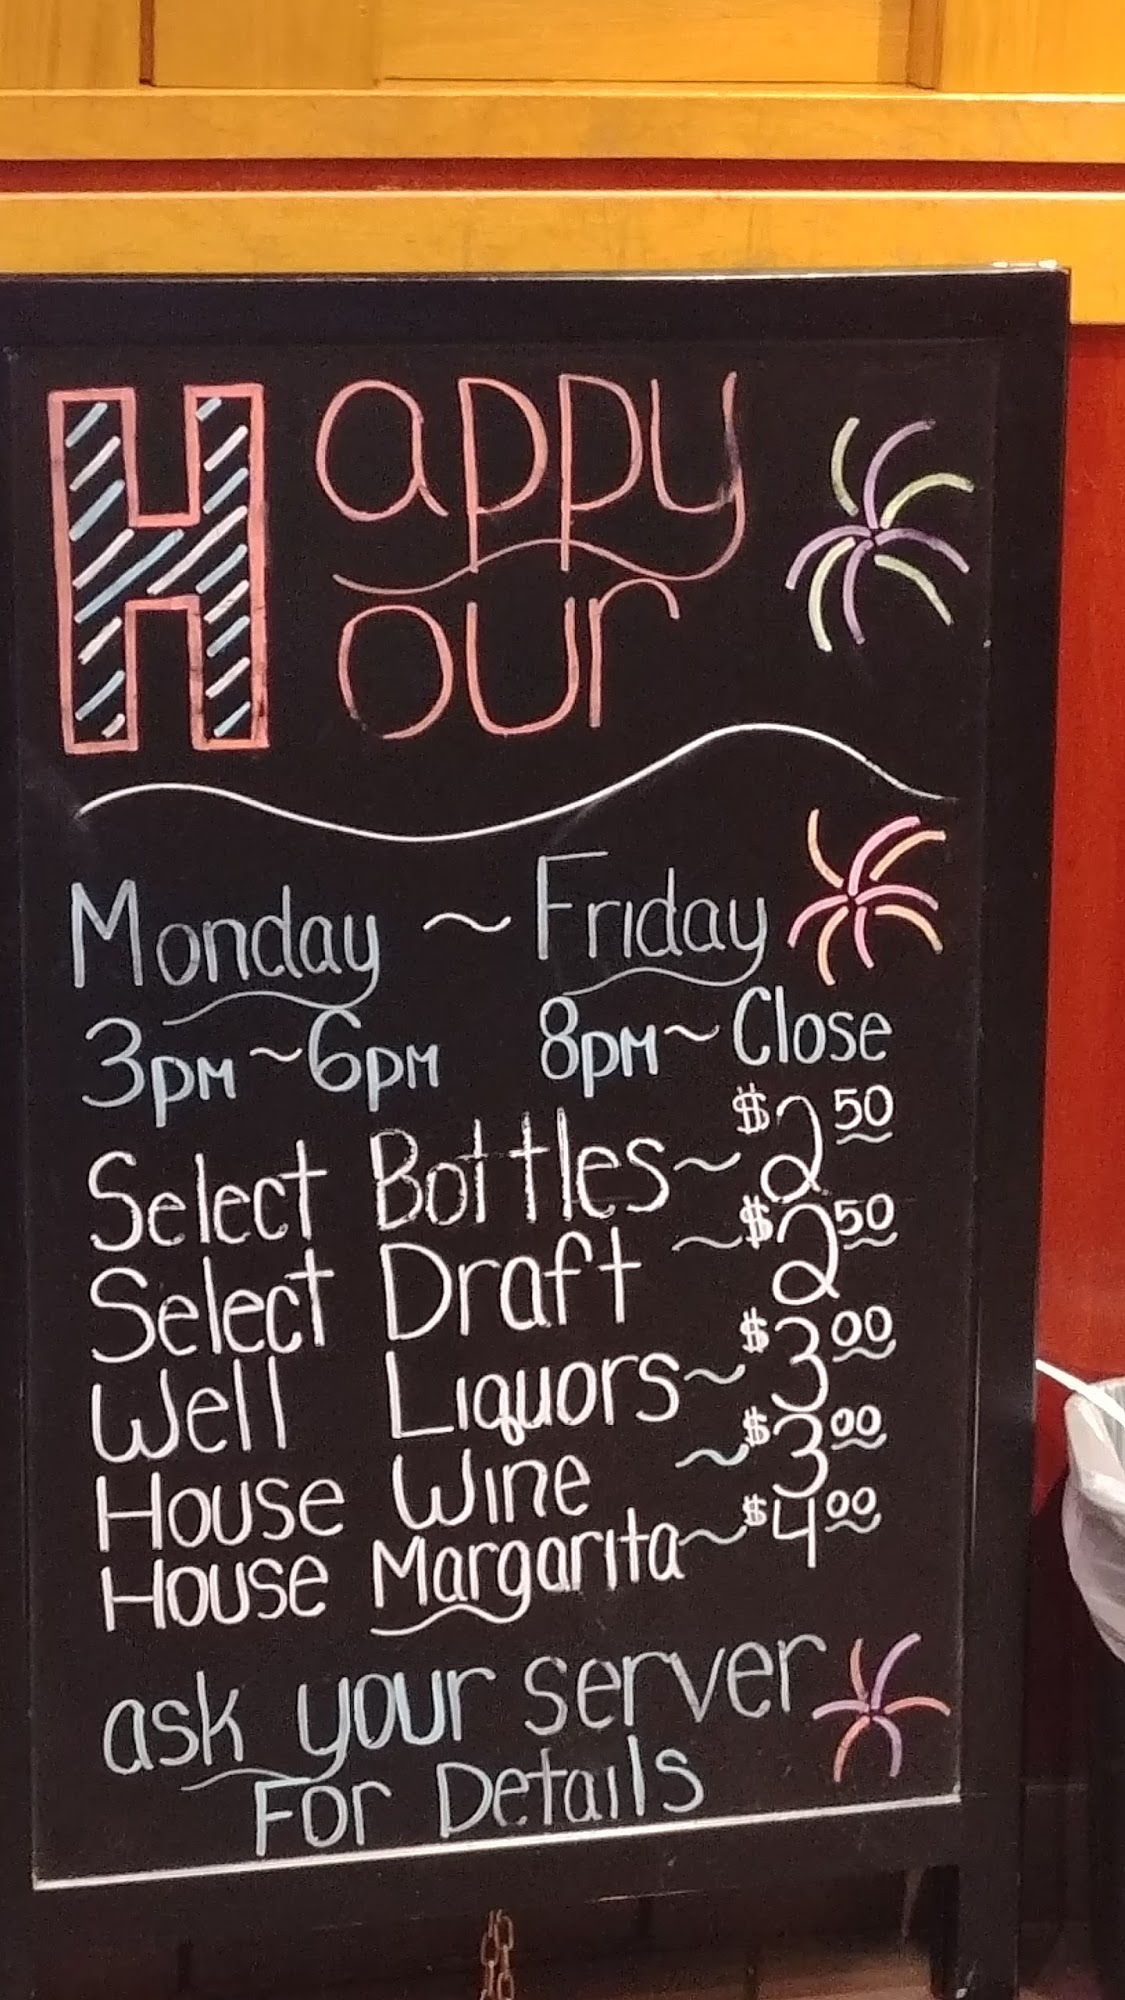 Happy
Hour
Monday ~ Friday
3pm ~ 6pm 8pm ~ Close
Select Bottles ~ $2.50
Select Draft ~ $2.50
Well Liquors ~ $3.00
House Wine ~ $3.00
House Margarita ~ $4.00
ask your server
For Details